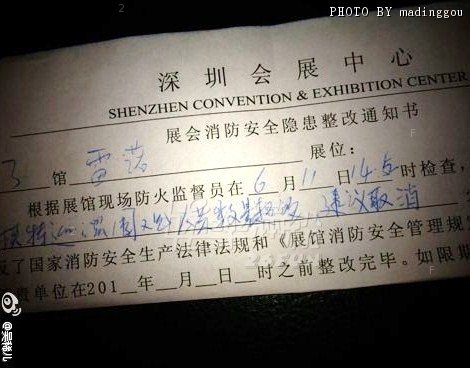 PHOTO BY madinggou
深圳会展中心
SHENZHEN CONVENTION & EXHIBITION CENTER
展会消防安全隐患整改通知书
3 馆 雷诺 展位:
根据展馆现场防火监督员在 6 月 11 日 14 时检查,
模特 周 人员数量 建议取消
反了国家消防安全生产法律法规和《展馆消防安全管理规
责单位在201__年__月__日__时之前整改完毕。如限期